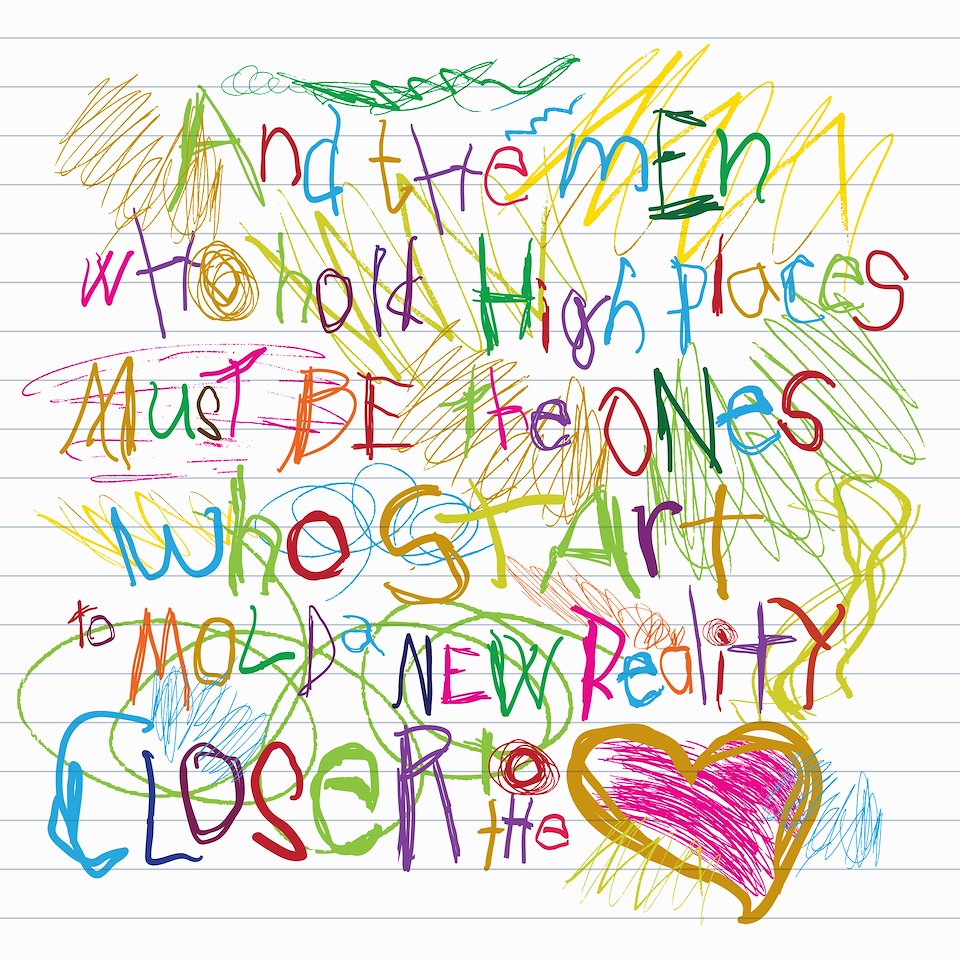 And the mEn
wHo hold High places
MusT BE the ONes
who START
to MOLD a NEW ReaLiTY
CLOSER to
tHe